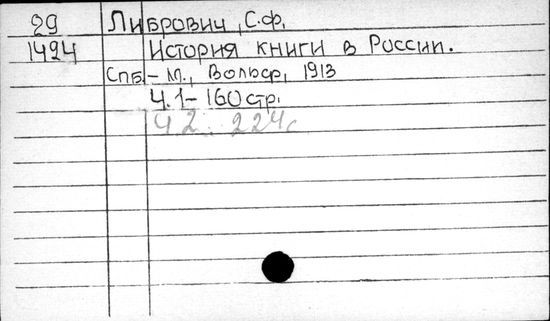 29 Либрович, С.Ф.
1424 История книги в России.
Спб. - М., Вольф, 1913
Ч.1 - 160 стр.
Ч 2. 224 с